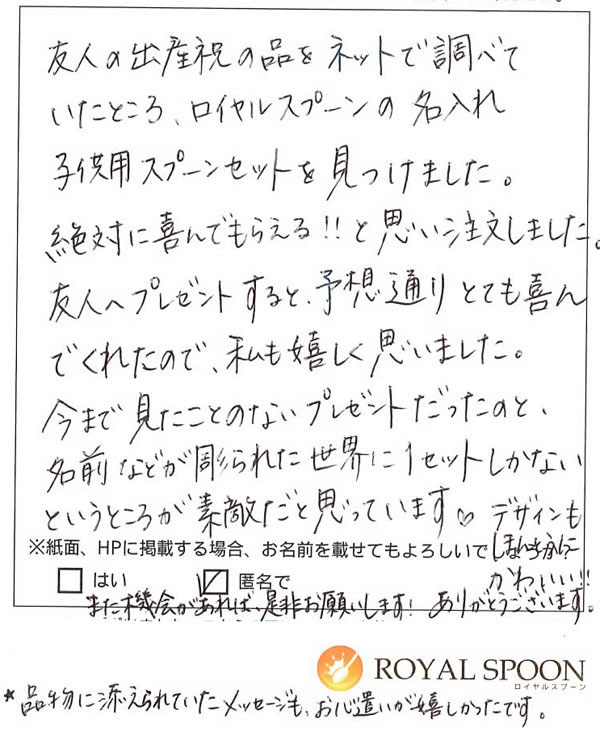 友人の出産祝の品をネットで調べて
いたところ、ロイヤルスプーンの名入れ
子供用スプーンセットを見つけました。
絶対に喜んでもらえる!!と思い注文しました。
友人へプレゼントすると、予想通りとても喜ん
でくれたので、私も嬉しく思いました。
今まで見たことのないプレゼントだったのと、
名前などが彫られた世界に1セットしかない
というところが素敵だなと思っています♡ デザインも
※紙面、HPに掲載する場合、お名前を載せてもよろしいで
かわいい!!
はい 匿名で
また機会があれば、是非お願いします! ありがとうございます。
ROYAL SPOON
ロイヤルスプーン
*品物に添えられていたメッセージも、お心遣いが嬉しかったです。